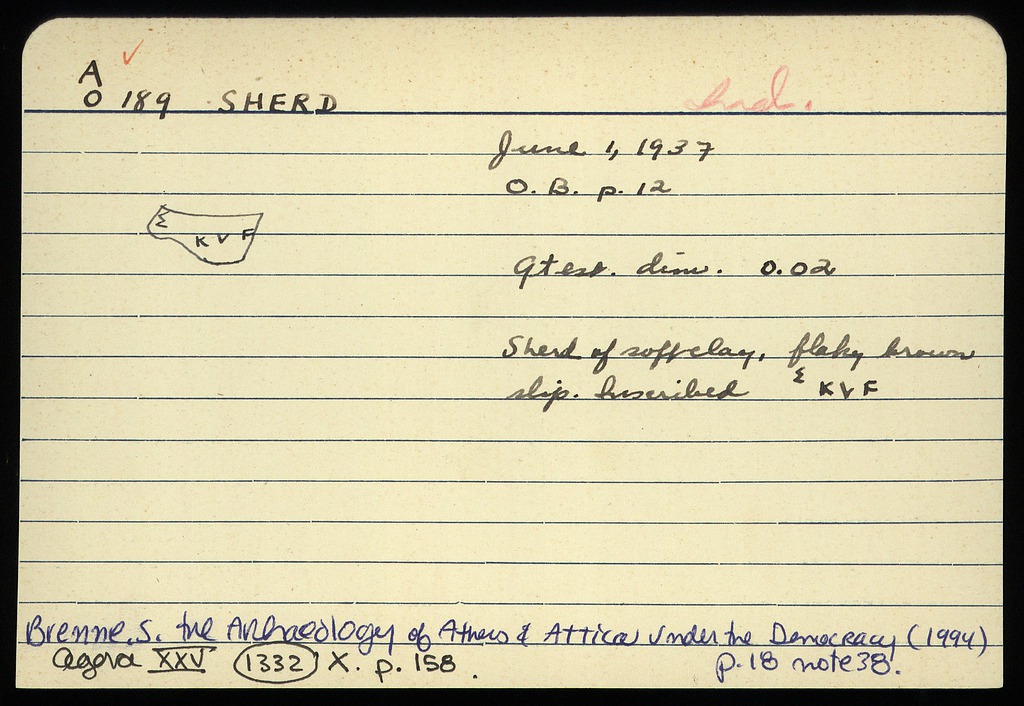 A ✓
O 189 SHERD
June 1, 1937
O. B. p. 12
Σ
K V F
Gtest. dim. 0.02
Sherd of soft clay, flaky brown
slip. Inscribed Σ K V F
Brenne, S. the Archaeology of Athens & Attica Under the Democracy (1994)
p. 18 note 38.
Agora XXV 1332 X. p. 158.